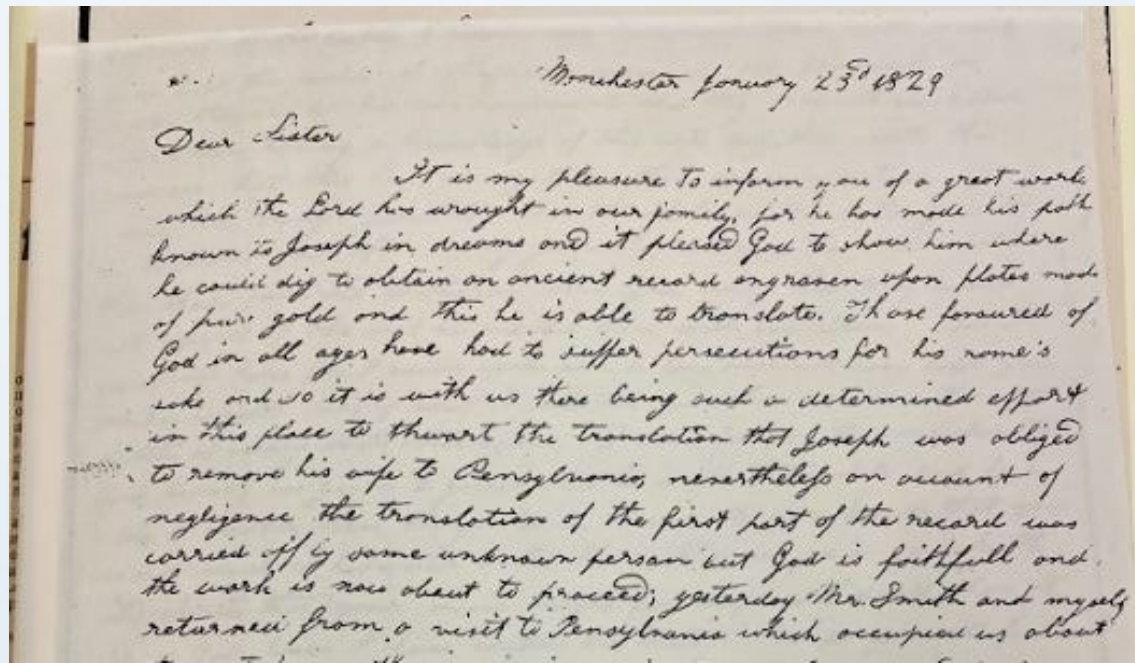 Monchester Jonuory 23rd 1829
Dear Sister
It is my pleasure to inform you of a great work
which the Lord has wrought in our family, for he has made his path
known to Joseph in dreams and it pleased God to show him where
he could dig to obtain an ancient record engraven upon plates made
of pure gold and this he is able to translate. Those favoured of
God in all ages have had to suffer persecutions for his name's
sake and so it is with us there being such a determined effort
in this place to thwart the translation that Joseph was obliged
to remove his wife to Pensylvania, nevertheless on account of
negligence the translation of the first part of the record was
carried off by some unknown person but God is faithfull and
the work is now about to proceed; yesterday Mr. Smith and myself
returned from a visit to Pensylvania which occupied us about